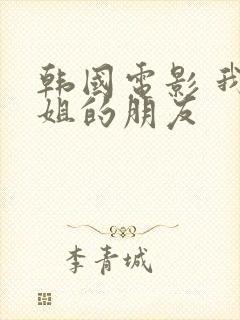 韩國電影 我
姐的朋友
李青城